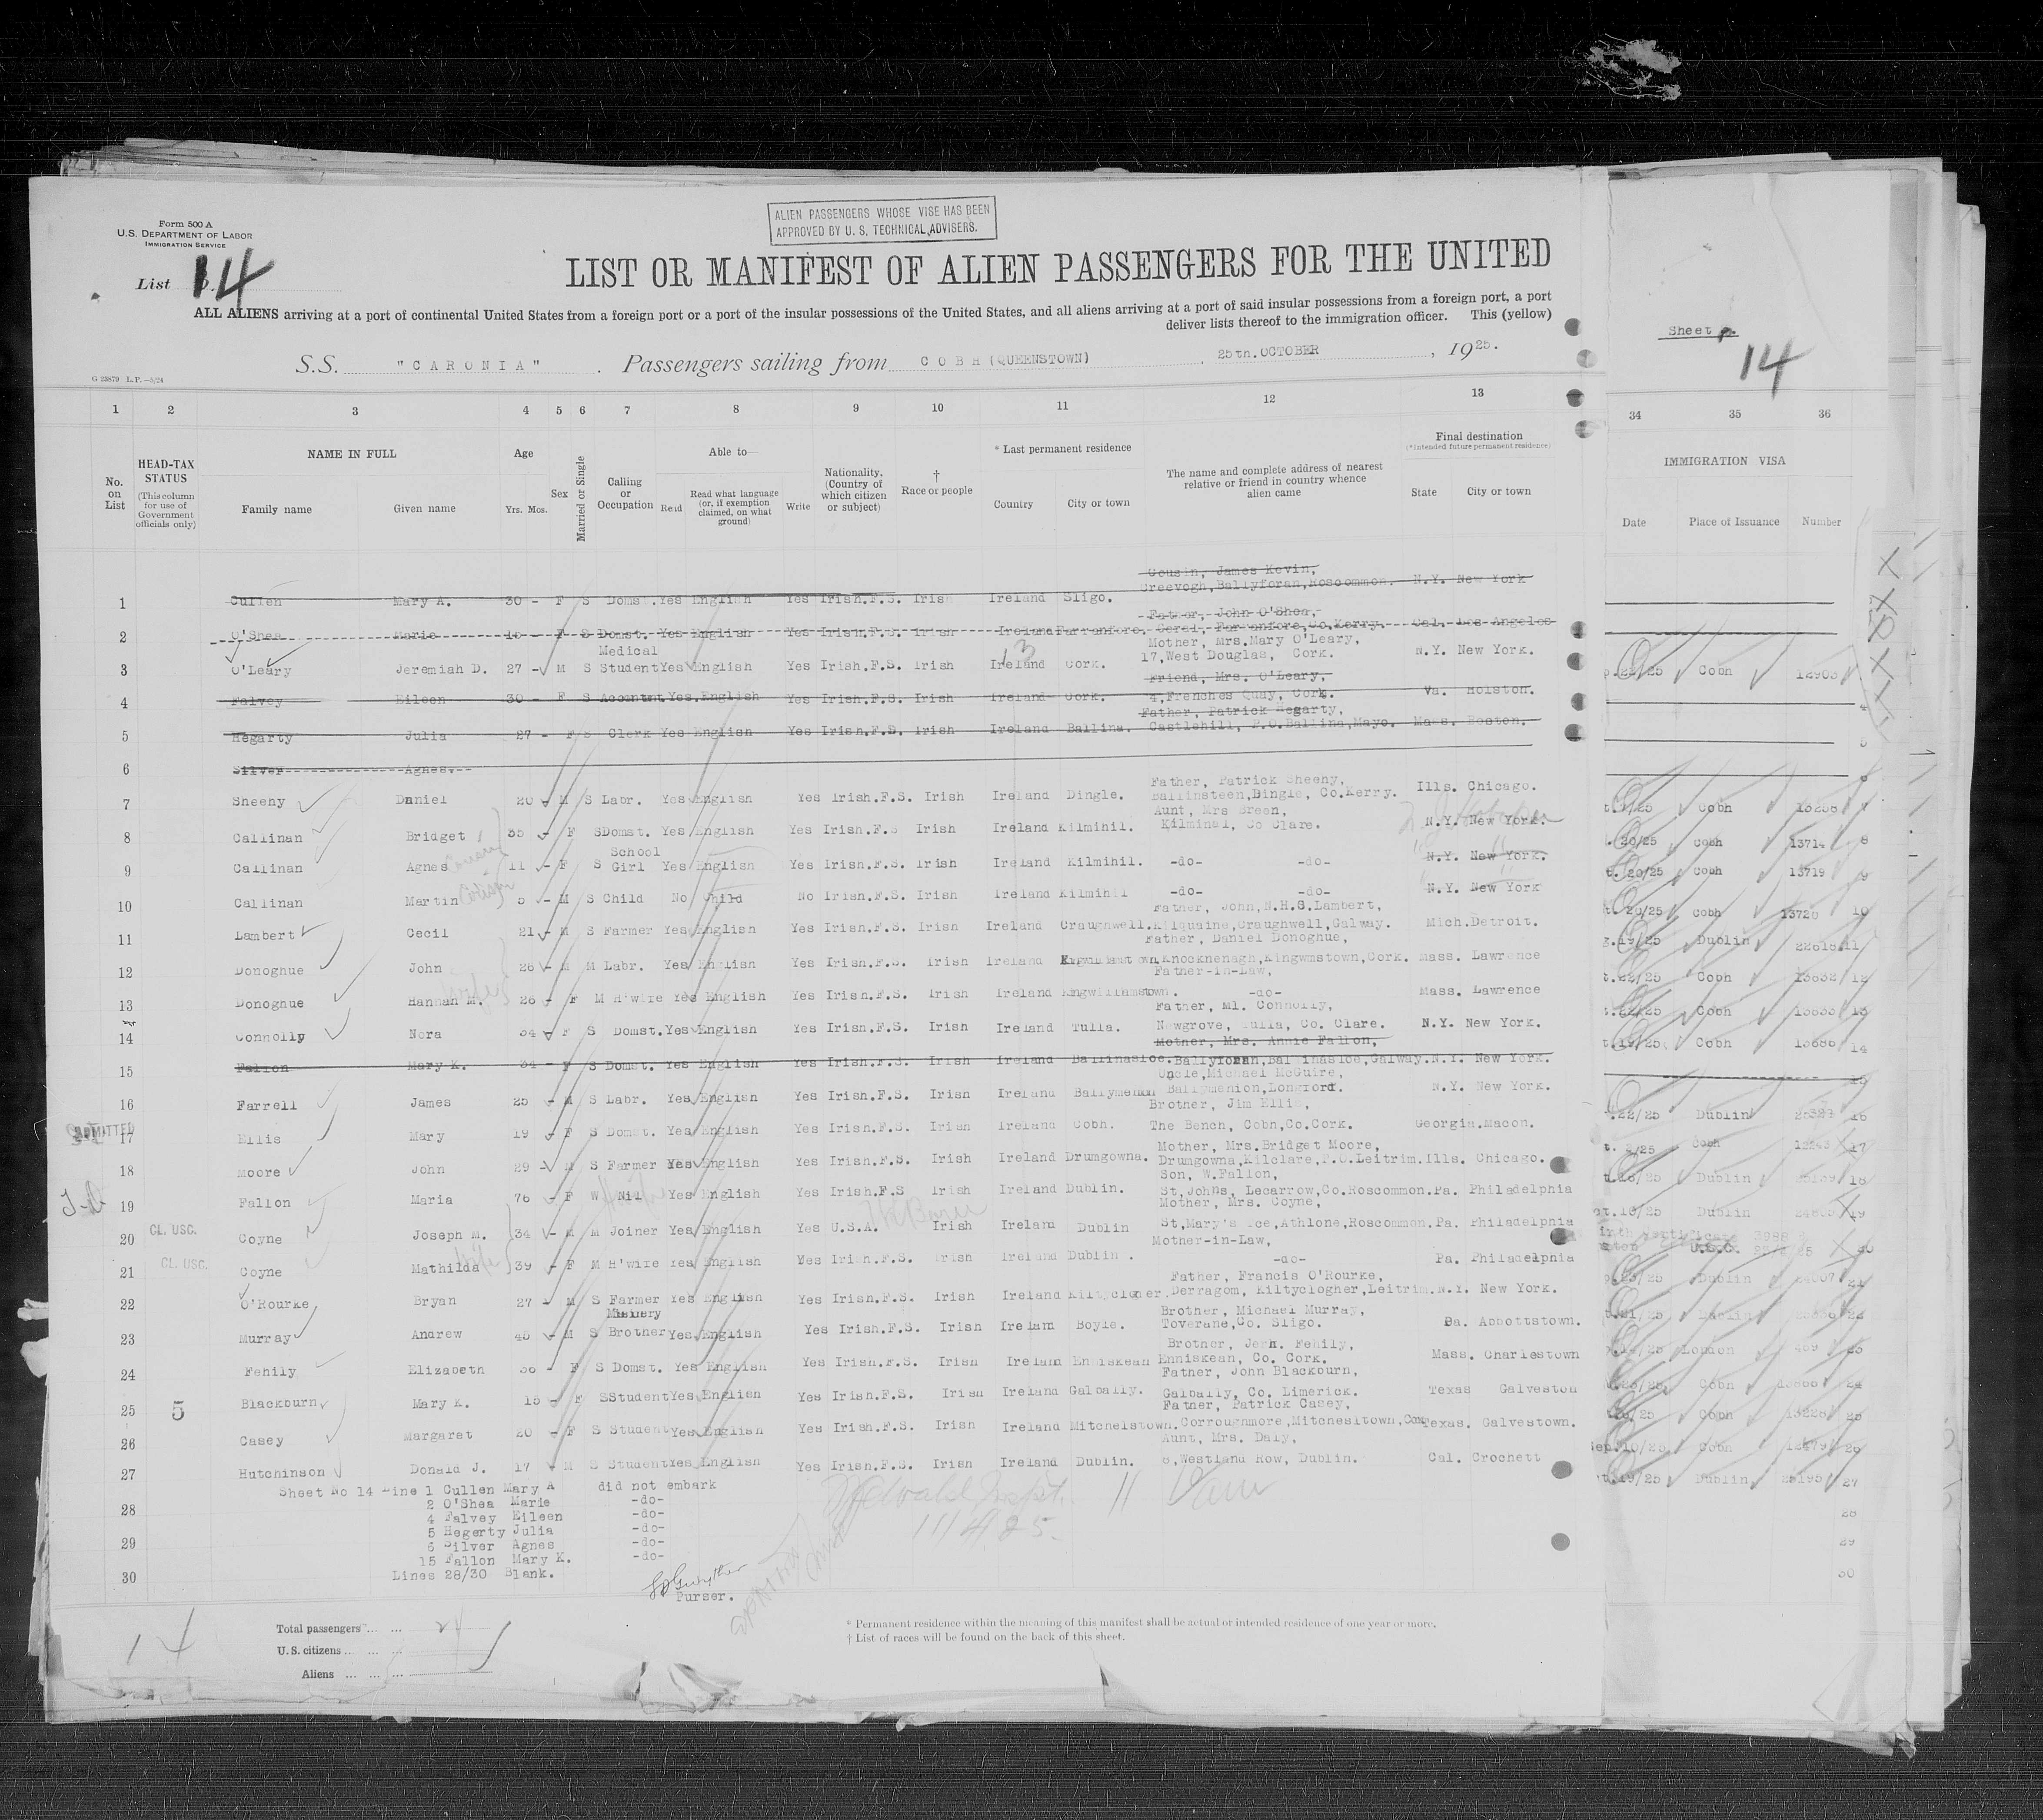 Form 500 A
U.S. DEPARTMENT OF LABOR
IMMIGRATION SERVICE
List 14
ALIEN PASSENGERS WHOSE VISE HAS BEEN
APPROVED BY U. S. TECHNICAL ADVISERS.
LIST OR MANIFEST OF ALIEN PASSENGERS FOR THE UNITED
ALL ALIENS arriving at a port of continental United States from a foreign port or a port of the insular possessions of the United States, and all aliens arriving at a port of said insular possessions from a foreign port, a port
deliver lists thereof to the immigration officer. This (yellow)
S.S. "CARONIA" . Passengers sailing from COBH (QUEENSTOWN) , 25th. OCTOBER , 1925.
G 23879 L.P.—5/24
Sheet
14
1 2 3 4 5 6 7 8 9 10 11 12 13 34 35 36
No. on List
HEAD-TAX STATUS
(This column for use of Government officials only)
NAME IN FULL
Family name Given name
Age
Yrs. Mos.
Sex
Married or Single
Calling or Occupation
Able to—
Read Read what language (or, if exemption claimed, on what ground) Write
Nationality. (Country of which citizen or subject)
† Race or people
* Last permanent residence
Country City or town
The name and complete address of nearest relative or friend in country whence alien came
Final destination
(*Intended future permanent residence)
State City or town
IMMIGRATION VISA
Date Place of Issuance Number
Cousin, James Kevin,
1 Cullen Mary A. 30 - F S Domst. Yes English Yes Irish.F.S. Irish Ireland Sligo. Creevogh,Ballyforan,Roscommon. N.Y. New York
Father, John O'Shea,
2 O'Shea Marie F S Domst. Yes English Yes Irish.F.S. Irish Ireland Farranfore. Farranfore,Co.Kerry. Cal. Los Angeles
Mother, Mrs.Mary O'Leary,
3 O'Leary Jeremiah D. 27 - M S Medical Student Yes English Yes Irish.F.S. Irish Ireland Cork. 17,West Douglas, Cork. N.Y. New York. Cobh 12903
Friend, Mrs. O'Leary,
4 Falvey Eileen 30 - F S Acountnt Yes English Yes Irish.F.S. Irish Ireland Cork. 4,Frenches Quay, Cork. Va. Holston.
Father, Patrick Hegarty,
5 Hegarty Julia 27 - F S Clerk Yes English Yes Irish.F.S. Irish Ireland Ballina. Castlehill, P.O.Ballina,Mayo. Mass. Boston.
6 Silver Agnes.
Father, Patrick Sheehy,
7 Sheehy Daniel 20 - M S Labr. Yes English Yes Irish.F.S. Irish Ireland Dingle. Ballinsteen,Dingle, Co.Kerry. Ills. Chicago. Cobh 7
Aunt, Mrs Breen,
8 Callinan Bridget 35 - F S Domst. Yes English Yes Irish.F.S Irish Ireland Kilmihil. Kilmihal, Co Clare. N.Y. New York. 20/25 Cobh 13714 8
9 Callinan Agnes 11 - F S School Girl Yes English Yes Irish.F.S. Irish Ireland Kilmihil. -do- -do- N.Y. New York. 20/25 Cobh 13719 9
10 Callinan Martin - M S Child No Child No Irish.F.S. Irish Ireland Kilmihil -do- -do- N.Y. New York 20/25 Cobh 13720 10
Father, John,N.H.S.Lambert,
11 Lambert Cecil 21 - M S Farmer Yes English Yes Irish.F.S. Irish Ireland Craughwell. Kilquaine,Craughwell,Galway. Mich.Detroit. 19/25 Dublin 11
Father, Daniel Donoghue,
12 Donoghue John 26 - M M Labr. Yes English Yes Irish.F.S. Irish Ireland Knocknenagh,Kingwmstown,Cork. Mass. Lawrence 22/25 Cobh 13832 12
Father-in-Law,
13 Donoghue Hannah M. 26 - F M H'wife Yes English Yes Irish.F.S. Irish Ireland Kingwilliamstown. -do- Mass. Lawrence 22/25 Cobh 13833 13
Father, Ml. Connolly,
14 Connolly Nora 34 F S Domst. Yes English Yes Irish.F.S. Irish Ireland Tulla. Newgrove, Tulla, Co. Clare. N.Y. New York. 19/25 Cobh 14
Mother, Mrs. Annie Fallon,
15 Fallon Mary K. 34 - F S Domst. Yes English Yes Irish.F.S. Irish Ireland Ballinasloe. Ballyforan,Ballinasloe,Galway. N.Y. New York.
Uncle,Michael McGuire,
16 Farrell James 25 - M S Labr. Yes English Yes Irish.F.S. Irish Ireland Ballymenion Ballymenion,Longford. N.Y. New York. 22/25 Dublin 16
Brother, Jim Ellis,
ADMITTED
17 Ellis Mary 19 - F S Domst. Yes English Yes Irish.F.S. Irish Ireland Cobh. The Bench, Cobh,Co.Cork. Georgia.Macon. Cobh 12243 17
Mother, Mrs.Bridget Moore,
18 Moore John 29 - M S Farmer Yes English Yes Irish.F.S. Irish Ireland Drumgowna. Drumgowna,Kilclare,P.O.Leitrim. Ills. Chicago. Dublin 18
Son, W.Fallon,
19 Fallon Maria 76 - F W Nil Yes English Yes Irish.F.S Irish Ireland Dublin. St,Johns, Lecarrow,Co.Roscommon. Pa. Philadelphia Dublin 19
Mother, Mrs. Coyne,
20 CL. USC. Coyne Joseph M. 34 - M M Joiner Yes English Yes U.S.A. Irish Ireland Dublin St,Mary's Athlone,Roscommon. Pa. Philadelphia U.S.C.
Mother-in-Law,
21 CL. USC. Coyne Mathilda 39 - F M H'wife Yes English Yes Irish.F.S. Irish Ireland Dublin. -do- Pa. Philadelphia Dublin 24007 21
Father, Francis O'Rourke,
22 O'Rourke Bryan 27 - M S Farmer Yes English Yes Irish.F.S. Irish Ireland Kiltyclogher. Derragom, Kiltyclogher,Leitrim. N.Y. New York. 21/25 Dublin 22
Brother, Michael Murray,
23 Murray Andrew 45 - M S Brother Yes English Yes Irish.F.S. Irish Ireland Boyle. Toverane,Co. Sligo. Pa. Abbottstown. London 23
Brother, Jerh. Fehily,
24 Fehily Elizabeth - F S Domst. Yes English Yes Irish.F.S. Irish Ireland Enniskean Enniskean, Co. Cork. Mass. Charlestown Cobh 24
Father, John Blackburn,
25 5 Blackburn Mary K. 15 - F S Student Yes English Yes Irish.F.S. Irish Ireland Galbally. Galbally, Co. Limerick. Texas Galveston Cobh 25
Father, Patrick Casey,
26 Casey Margaret 20 - F S Student Yes English Yes Irish.F.S. Irish Ireland Mitchelstown. Corroughmore,Mitchesltown,Co Texas. Galvestown. Sep.10/25 Cobh 12479 26
Aunt, Mrs. Daly,
27 Hutchinson Donald J. 17 M S Student Yes English Yes Irish.F.S. Irish Ireland Dublin. 8,Westland Row, Dublin. Cal. Crochett 19/25 Dublin 27
Sheet No 14 Line 1 Cullen Mary A did not embark
28 2 O'Shea Marie -do- 28
4 Falvey Eileen -do-
5 Hegerty Julia -do-
29 6 Silver Agnes -do- 29
15 Fallon Mary K. -do-
30 Lines 28/30 Blank. 30
Purser.
14
Total passengers ... ...
U.S. citizens ... ... ...
Aliens ... ... ...
* Permanent residence within the meaning of this manifest shall be actual or intended residence of one year or more.
† List of races will be found on the back of this sheet.